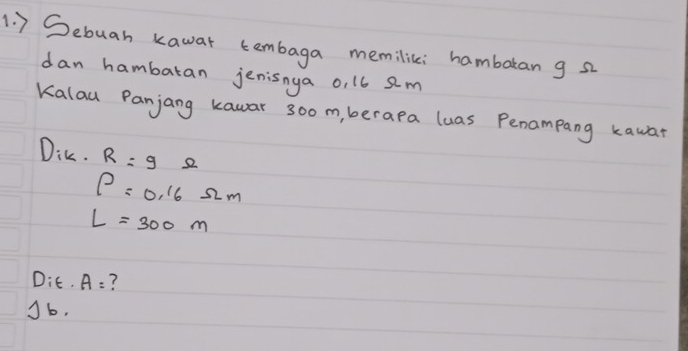 1.) Sebuah kawat tembaga memiliki hambatan 9 Ω
dan hambatan jenisnya 0,16 Ωm
Kalau Panjang kawat 300 m, berapa luas Penampang kawat
Dik. R = 9 Ω
ρ = 0,16 Ωm
L = 300 m
Dit. A = ?
Jb.